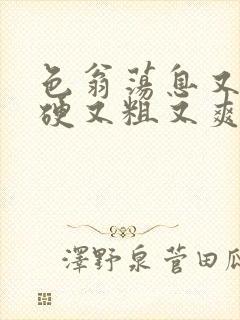 色翁荡息又
硬又粗又爽
澤野泉菅田瓜